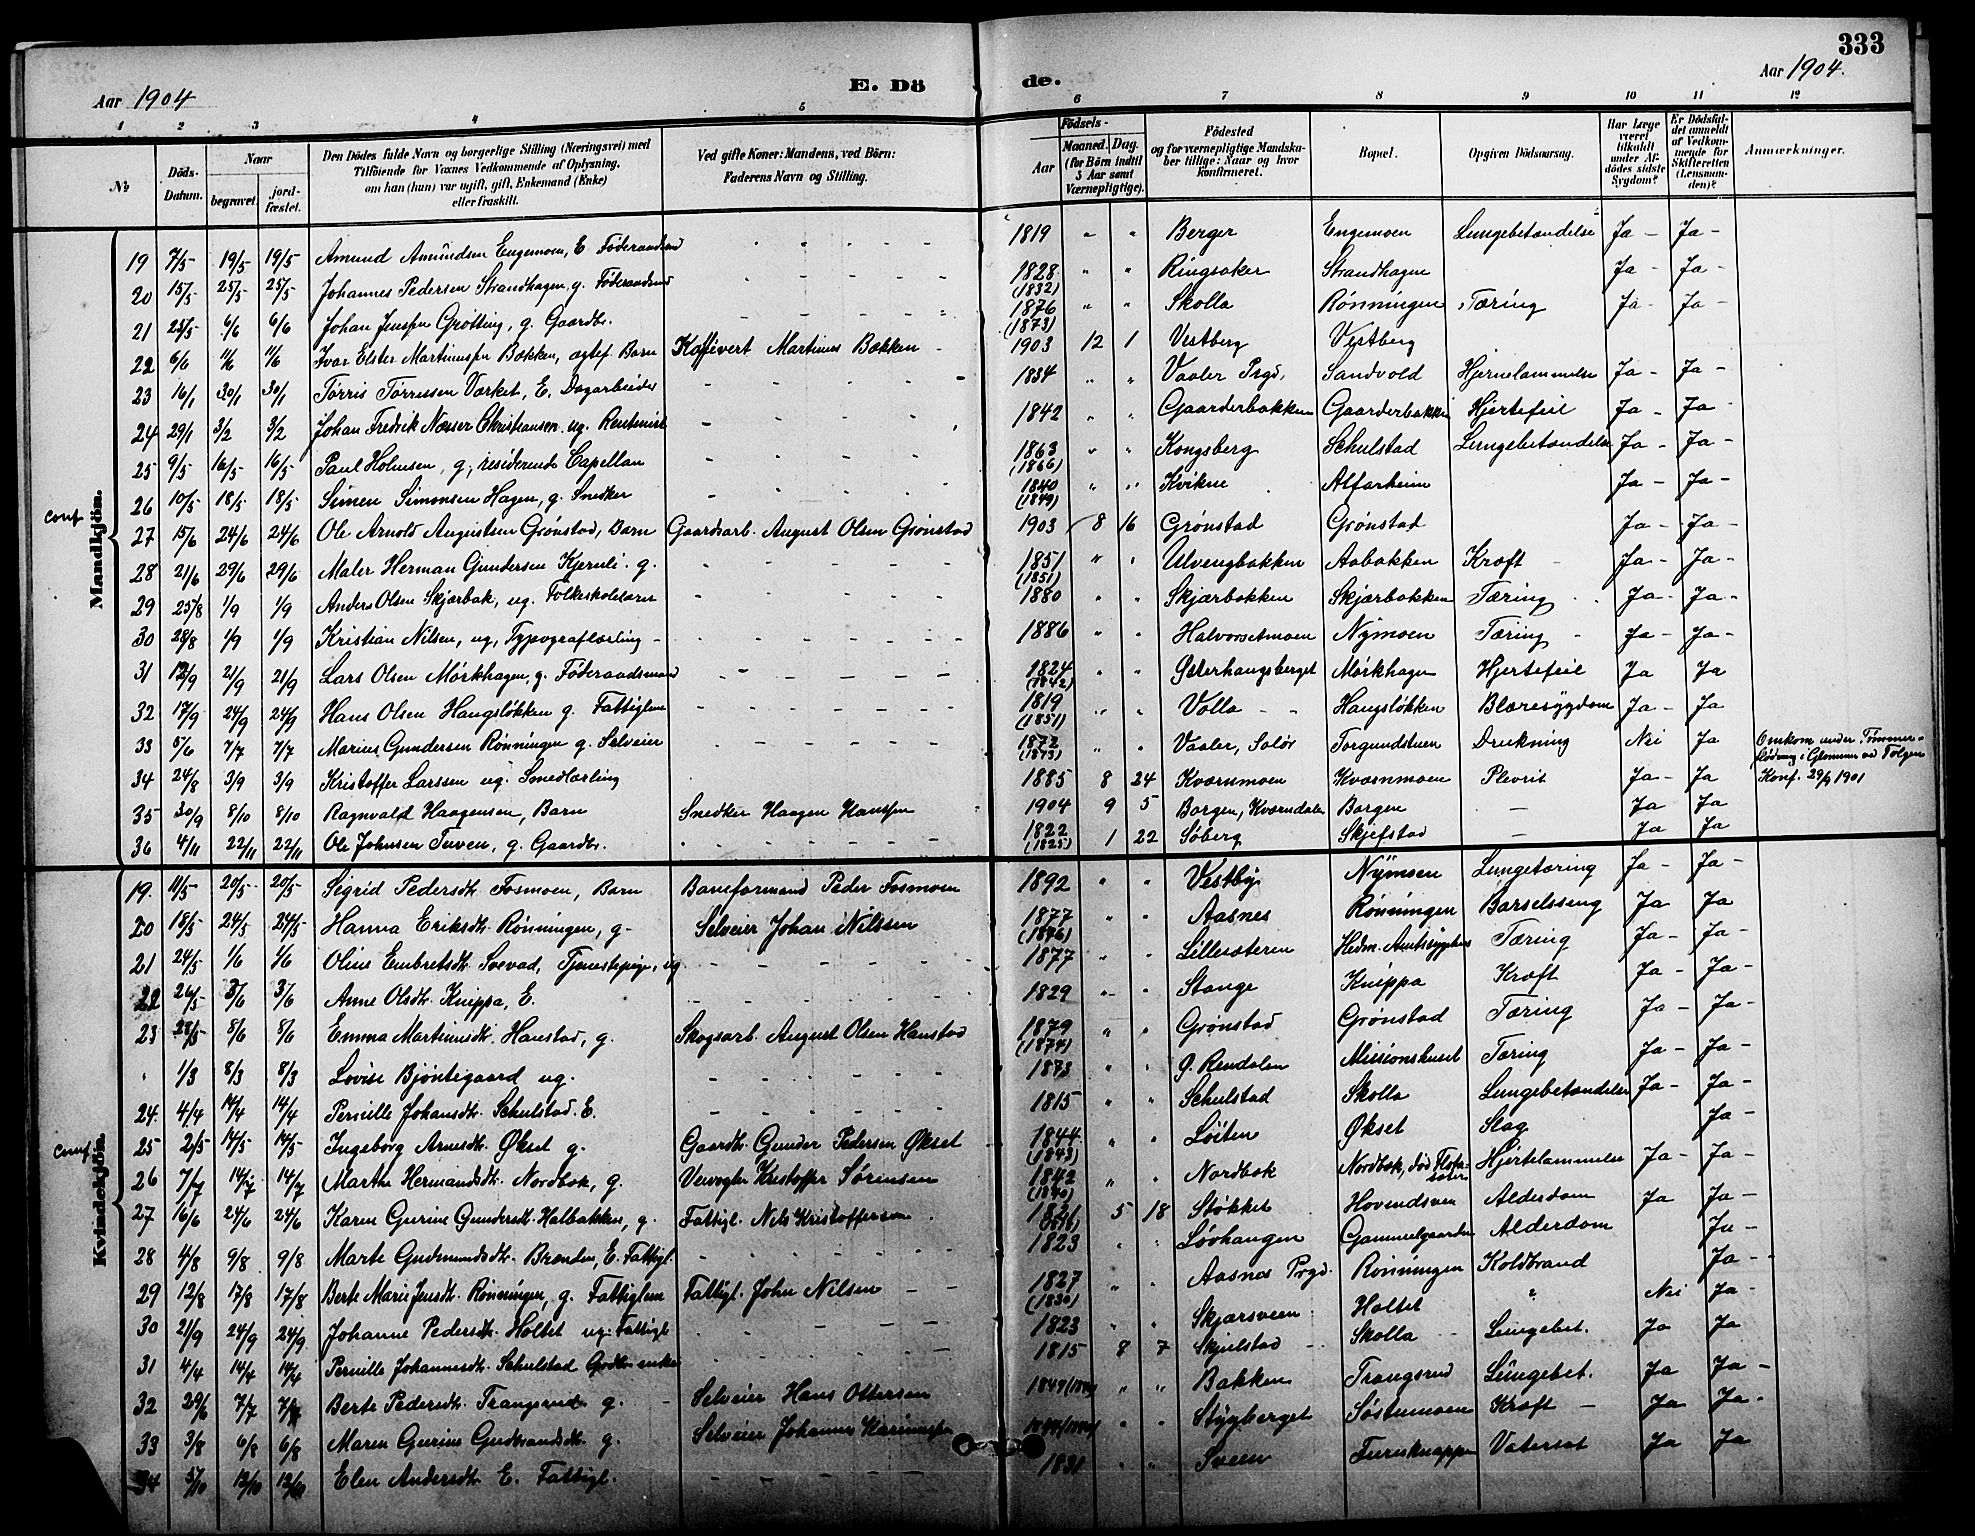 333
Aar 1904
E. Dö
de.
Aar 1904.
1 2 3 4 5 6 7 8 9 10 11 12
No
Döds-Datum.
Naar
begravet.
jord-fæstet.
Den Dödes fulde Navn og borgerlige Stilling (Næringsvei) med
Tilföiende for Voxnes Vedkommende af Oplysning,
om han (hun) var ugift, gift, Enkemand (Enke)
eller fraskilt.
Ved gifte Koner: Mandens, ved Börn:
Faderens Navn og Stilling.
Födsels-
Aar
Maaned. Dag.
(for Börn indtil 3 Aar samt Værnepligtige).
Födested
og for værnepligtige Mandska-
ber tillige: Naar og hvor
konfirmeret.
Bopæl.
Opgiven Dödsaarsag.
Har Læge været tilkaldt under Afdödes sidste Sygdom?
Er Dödsfaldet anmeldt af Vedkommende for Skifteretten (Lensmanden)?
Anmærkninger.
Mandkjön.
19 7/5 19/5 19/5 Amund Amundsen Engemoen, E. Föderaadsmd 1819 " " Berger Engemoen Lungebetændelse Ja - Ja -
20 15/5 25/5 25/5 Johannes Pedersen Strandhagen, g. Föderaadsmd 1828 (1832) " " Ringsaker Strandhagen Ja - Ja -
21 25/5 6/6 6/6 Johan Jenssen Grötting, g. Gaardbr. 1876 (1873) " " Skolla Rönningen Tæring Ja - Ja -
22 6/6 11/6 11/6 Ivar Elster Martinussen Bækken, ægtef. Barn Martinus Bækken 1903 12 1 Vestberg Vestberg
23 16/1 30/1 30/1 Törris Törrissen Værket, E. Dagarbeider 1834 " " Vaaler Prgd. Sandvold Hjernelammelse Ja - Ja -
24 29/1 3/2 3/2 Johan Fredrik Næsser Christiansen ug. Rentenist 1842 " " Gaarderbakken Gaarderbakken Hjertefeil Ja - Ja -
25 9/5 16/5 16/5 Paul Holmsen, g., residerende Capellan 1863 (1866) " " Kongsberg Schulstad Lungebetændelse Ja - Ja -
26 10/5 18/5 18/5 Simen Simonsen Hagen, g. Snedker 1840 (1849) " " Kvikne Alfarheim Ja - Ja -
conf
27 15/6 24/6 24/6 Ole Arnold Augustsen Grönstad, Barn Gaardsarb. August Olsen Grönstad 1903 8 16 Grönstad Grönstad Ja - Ja -
28 21/6 29/6 29/6 Maler Herman Gundersen Kjernli. g. 1851 (1851) " " Ulvengbakken Aabakken Kræft Ja - Ja -
29 25/8 1/9 1/9 Anders Olsen Skjærbæk, ug. Folkeskolelærer 1880 " " Skjærbækken Skjærbækken Tæring Ja - Ja -
30 28/8 1/9 1/9 Kristian Nilsen, ug, Typograflærling - 1886 " " Halvorsetmoen Nymoen Tæring Ja - Ja -
31 12/9 21/9 21/9 Lars Olsen Mörkhagen, g. Föderaadsmand 1824 (1842) " " Österhaugsberget Mörkhagen Hjertefeil Ja Ja
32 17/9 24/9 24/9 Hans Olsen Haugslökken g. Fattiglem 1819 (1851) " " Volla Haugslökken Blæresygdom Ja - Ja
33 5/6 7/7 7/7 Marius Gundersen Rönningen g. Selveier 1872 (1873) " " Vaaler, Solör Torgundstuen Drukning Nei Ja Omkom under Tömmer-
flödning i Glommen ved Tolgen
34 24/8 3/9 3/9 Kristoffer Larssen ug. Smedlærling 1885 8 24 Kværnmoen Kværnmoen Plevrit Ja - Ja Konf. 29/9 1901
35 30/9 8/10 8/10 Ragnvald Haagensen, Barn Snedker Haagen Hanssen 1904 9 5 Borgen, Kværndalen Borgen — Ja Ja
36 4/11 22/11 22/11 Ole Johnsen Tuven, g. Gaardbr. 1822 (1825) 1 22 Söberg Skjefstad — Ja Ja
Kvindekjön.
19. 11/5 20/5 20/5 Sigrid Pedersdtr. Fosmoen, Barn Baneformand Peder Fosmoen 1892 " " Vestby Nymoen Lungetæring Ja - Ja -
20 18/5 24/5 24/5 Hanna Eriksdtr. Rönningen, g. Selveier Johan Nilssen 1877 (1876) " " Aasnes Rönningen Barselseng Ja Ja
21 24/5 1/6 1/6 Oline Embretsdtr. Svevad, Tjenestepige, ug 1877 " " Lillesæteren Hedm. Amtssygehus Tæring Ja - Ja -
22 26/5 3/6 3/6 Anne Olsdtr. Knippa, E. 1829 " " Stange Knippa Kræft Ja - Ja -
23 28/5 8/6 8/6 Emma Martinusdtr. Hanstad, g. Skogsarb. August Olsen Hanstad 1879 (1874) " " Grönstad Grönstad Tæring Ja - Ja -
" 1/3 8/3 8/3 Lovise Bjöntegaard ug. 1873 " " Rendalen Missionshuset Tæring Ja - Ja -
24. 4/4 14/4 14/4 Pernille Johansdtr. Schulstad. E. 1815 " " Schulstad Skolla Lungebetændelse Ja - Ja -
25 2/5 14/5 14/5 Ingeborg Arnesdtr. Økset g. Gaardbr. Gunder Pedersen Økset 1844 (1843) " " Löiten Økset Slag Ja -
conf.
26 7/7 14/7 14/7 Marthe Hermandsdtr. Nordbæk, g. Veivogter Kristoffer Sörensen 1842 (1840) " " Nordbæk Nordbæk, död Hjertelammelse Ja - Ja -
27 16/6 24/6 24/6 Karen Gurine Gundersdtr. Halbakken, g. Fattigl. Nils Kristoffersen 5 18 Stökket Hovendsven Alderdom Ja Ja -
28 4/8 9/8 9/8 Marte Gudmundsdtr. Brænden, E. Fattigl. 1823 " " Lövhaugen Gammelgaarden Alderdom Ja -
29 12/8 17/8 17/8 Berte Marie Jensdtr. Rönningen, g. Fattiglem Fattigl. John Nilsen 1827 (1830) " " Aasnes Prgd. Rönningen Koldbrand Ja -
30 21/9 24/9 24/9 Johanne Pedersdtr. Holtet ug. Fattigl. 1823 " " Skjærsveen Holtet " Nei Ja -
31 4/4 14/4 14/4 Pernille Johannesdtr. Schulstad 1815 8 7 Skjulstad Skolla Lungebet. Ja Ja
32 29/6 7/7 7/7 Berte Pedersdtr. Trangsrud g. Selveier Hans Ottersen " " Bakken Trangsrud Lungebet. Ja Ja -
33 3/8 6/8 6/8 Maren Gurine Gudbrandsdtr. g. Selveier Johannes " " Stygberget Söstumoen Kræft - Ja Ja -
34 5/10 12/10 12/10 Elen Andersdtr. E. Fattigl. 1831 " " Sveen Furuknappen Vatersot Ja Ja